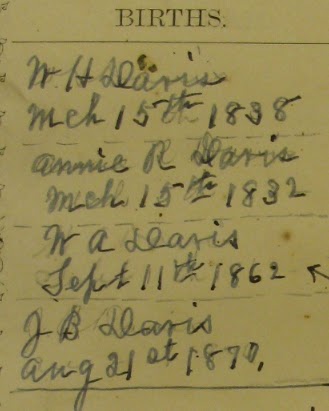 BIRTHS.
W H Davis
Mch 15th 1838
Annie R Davis
Mch 15th 1832
W A Davis
Sept 11th 1862
J B Davis
Aug 21st 1870,